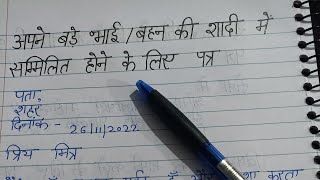 अपने बड़े भाई/बहन की शादी में
सम्मिलित होने के लिए पत्र
पता,
शहर
दिनांक- 26/11/2022
प्रिय मित्र